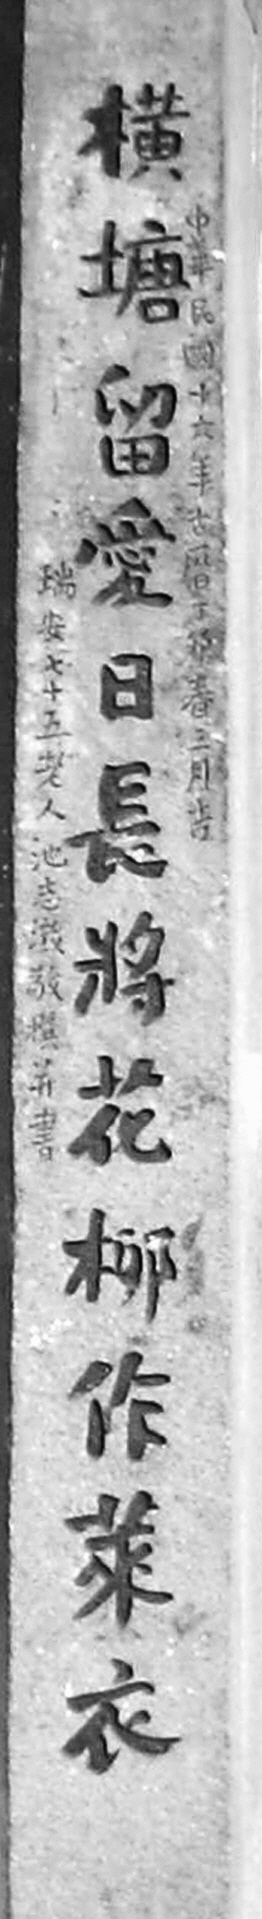 中華民國十六年古曆丁卯春三月吉
橫塘留愛日長將花柳作萊衣
瑞安七十五老人池志澂敬撰并書